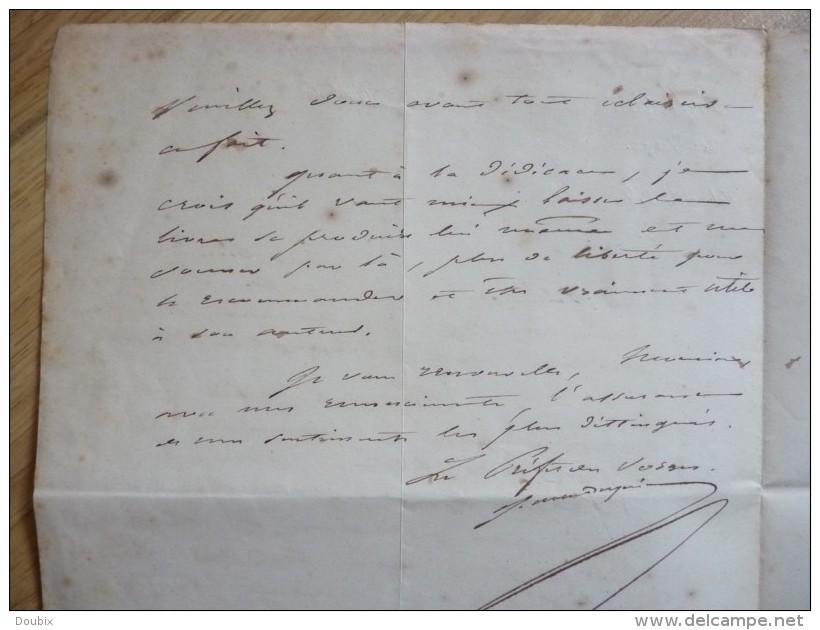 Veuillez donc avant tout éclaircir
ce fait.
Quant à la dédicace, je
crois qu'il vaut mieux laisser le
livre se produire lui même et me
donner par là, plus de liberté pour
le recommander et être vraiment utile
à son auteur.
Je vous renouvelle, Monsieur
avec mes remerciements, l'assurance
de mes sentiments les plus distingués.
Le Préfet des Vosges.
Doubix
www.delcampe.net